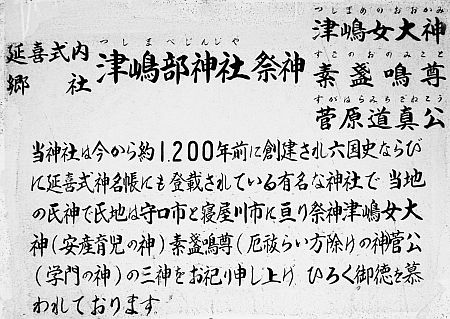 延喜式内
郷社
つしまべじんじや
津嶋部神社祭神
つしまめのおおかみ
津嶋女大神
すさのおのみこと
素盞嗚尊
すがはらみちざねこう
菅原道真公
当神社は今から約1.200年前に創建され六国史ならび
に延喜式神名帳にも登載されている有名な神社で 当地
の氏神で氏地は守口市と寝屋川市に亘り祭神津嶋女大
神(安産育児の神)素盞嗚尊(厄祓らい方除けの神菅公
(学門の神)の三神をお祀り申し上げ ひろく御徳を慕
われております